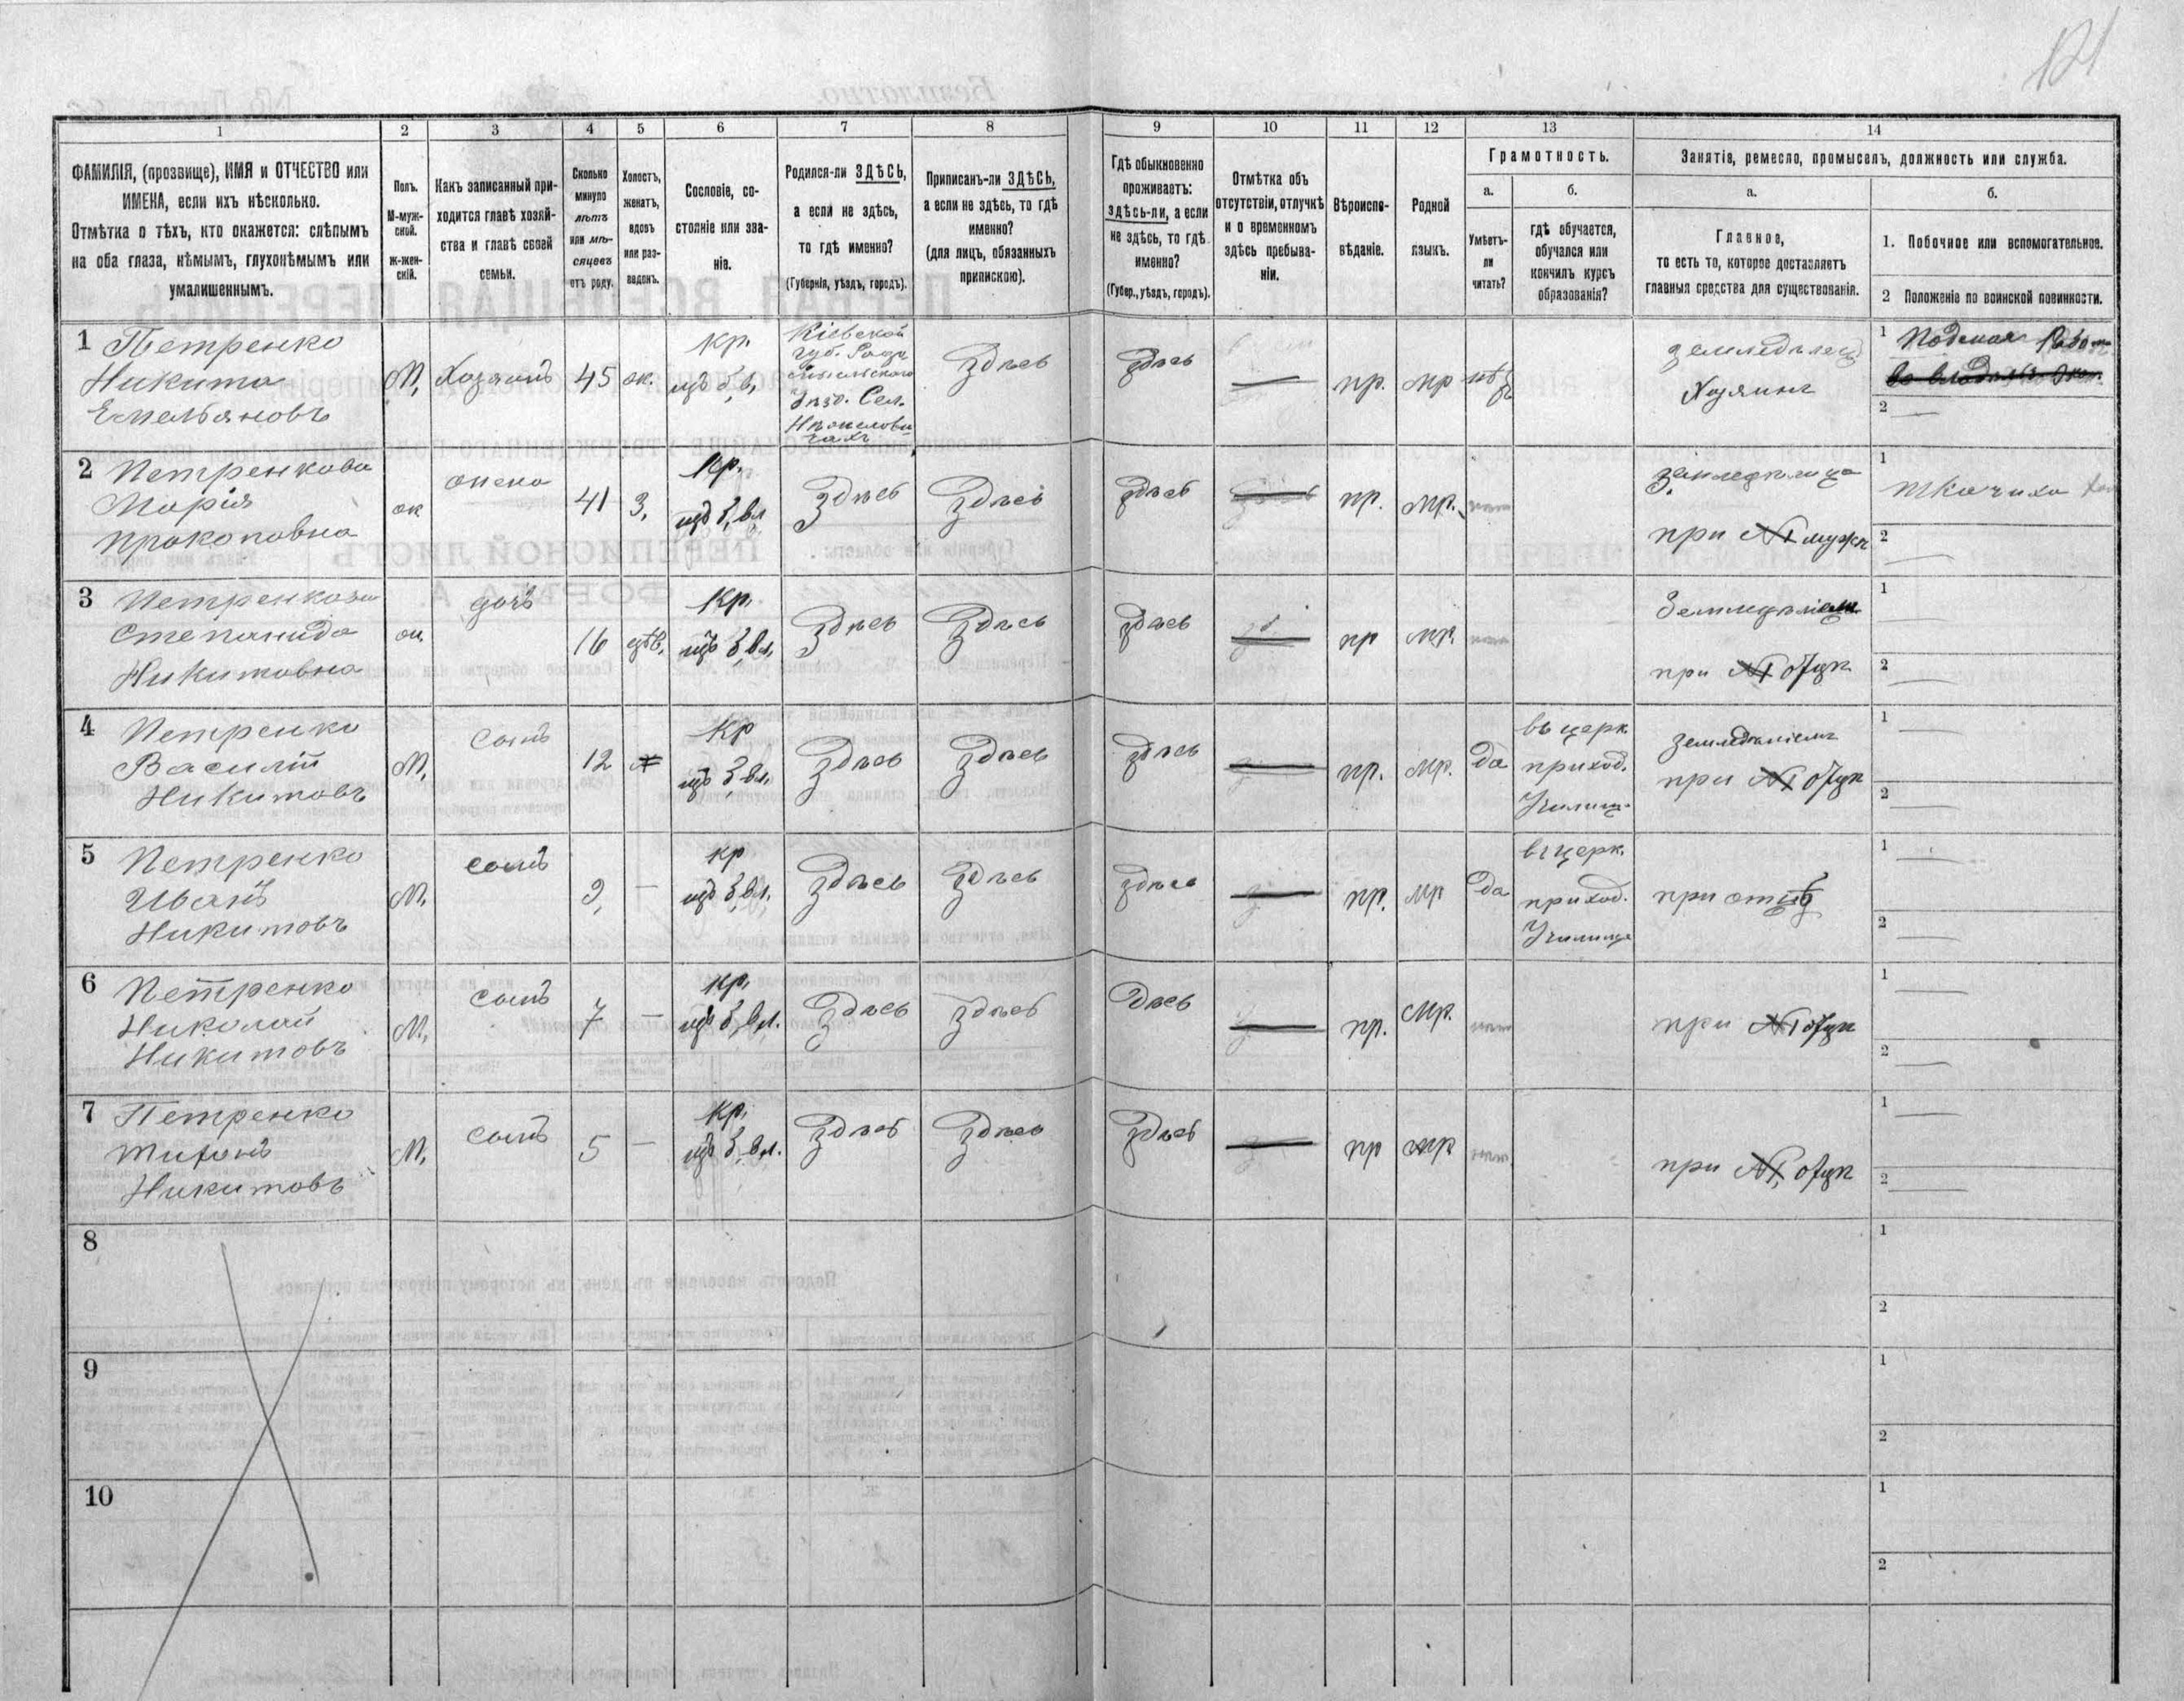 121
1
2
3
4
5
6
7
8
9
10
11
12
13
14
ФАМИЛІЯ, (прозвище), ИМЯ и ОТЧЕСТВО или
ИМЕНА, если ихъ нѣсколько.
Отмѣтка о тѣхъ, кто окажется: слѣпымъ
на оба глаза, нѣмымъ, глухонѣмымъ или
умалишеннымъ.
Полъ.
М-муж-
ской.
Ж-жен-
скій.
Какъ записанный при-
ходится главѣ хозяй-
ства и главѣ своей
семьи.
Сколько
минуло
лѣтъ
или мѣ-
сяцевъ
отъ роду.
Холостъ,
женатъ,
вдовъ
или раз-
веденъ.
Сословіе, со-
стояніе или зва-
ніе.
Родился-ли ЗДѢСЬ,
а если не здѣсь,
то гдѣ именно?
(Губернія, уѣздъ, городъ).
Приписанъ-ли ЗДѢСЬ,
а если не здѣсь, то гдѣ
именно?
(для лицъ, обязанныхъ
припискою).
Гдѣ обыкновенно
проживаетъ:
здѣсь-ли, а если
не здѣсь, то гдѣ
именно?
(Губер., уѣздъ, городъ).
Отмѣтка объ
отсутствіи, отлучкѣ
и о временномъ
здѣсь пребыва-
ніи.
Вѣроиспо-
вѣданіе.
Родной
языкъ.
Грамотность.
а.
Умѣетъ-
ли
читать?
б.
гдѣ обучается,
обучался или
кончилъ курсъ
образованія?
Занятіе, ремесло, промыселъ, должность или служба.
а.
Главное,
то есть то, которое доставляетъ
главныя средства для существованія.
б.
1. Побочное или вспомогательное.
2 Положеніе по воинской повинности.
1 Петренко
Никита
Емельяновъ
М,
Хозяинъ
45
ж.
кр.
изъ б, в,
Кіевской
губ.
Сел.
здѣсь
здѣсь
пр.
мр
нѣт
земледѣлец
Хозяинъ
1 Поденная
2 —
2 Петренкова
Марія
Прокоповна
ж
жена
41
З,
кр.
изъ б, вл
здѣсь
здѣсь
здѣсь
пр.
мр.
нет
земледѣлица
при №1 мужѣ
1 Ткачиха
2 —
3 Петренкова
Степанида
Никитовна
ж,
дочь
16
дѣв.
кр.
изъ б, вл,
здѣсь
здѣсь
здѣсь
пр
мр.
нет
при №1 отцѣ
1 —
2 —
4 Петренко
Василій
Никитовъ
М,
сынъ
12
кр
изъ б, вл,
здѣсь
здѣсь
здѣсь
пр.
мр.
да
въ церк
приход.
Училищ.
земледѣліемъ
при №1 отцѣ
1 —
2 —
5 Петренко
Иванъ
Никитовъ
М,
сынъ
9,
—
кр
изъ б, вл,
здѣсь
здѣсь
здѣсь
пр.
мр
да
въ церк.
приход.
Училище
при отцѣ
1 —
2 —
6 Петренко
Николай
Никитовъ
М,
сынъ
7
—
кр,
изъ б, вл.
здѣсь
здѣсь
здѣсь
пр.
мр.
нет
при №1 отцѣ
1 —
2 —
7 Петренко
Тихонъ
Никитовъ
М,
сынъ
5
—
кр,
изъ б, вл.
здѣсь
здѣсь
здѣсь
пр
мр
нет
при №1, отцѣ
1 —
2 —
8
1
2
9
1
2
10
1
2